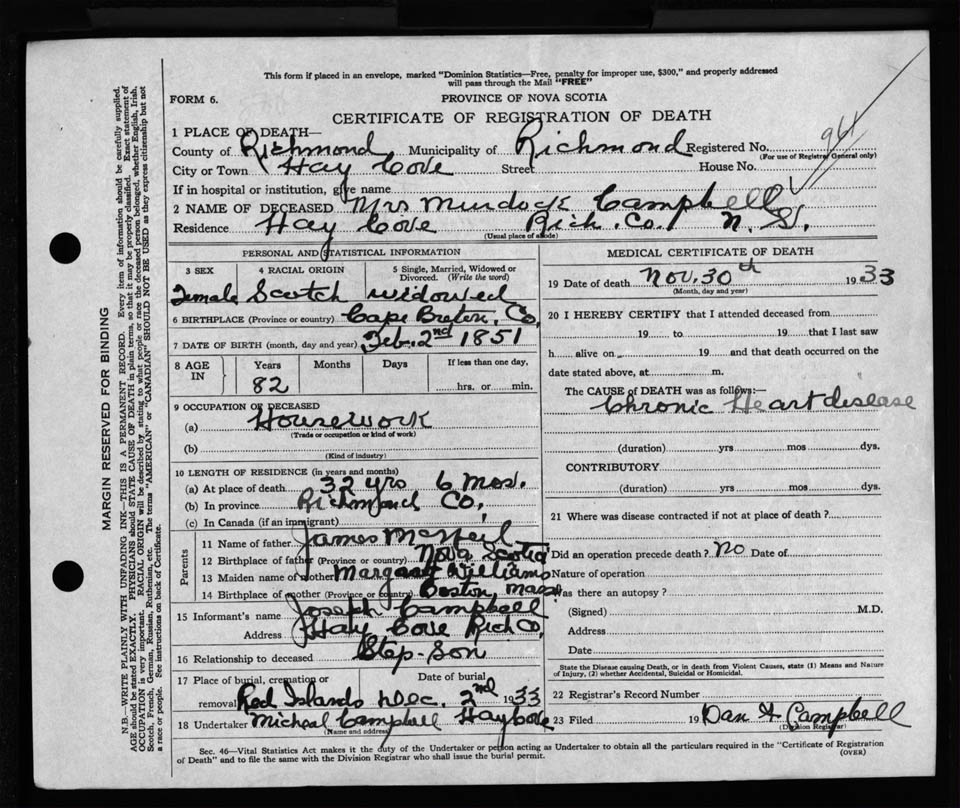 This form if placed in an envelope, marked "Dominion Statistics—Free, penalty for improper use, $300," and properly addressed
will pass through the Mail "FREE"
FORM 6.
PROVINCE OF NOVA SCOTIA
CERTIFICATE OF REGISTRATION OF DEATH
1 PLACE OF DEATH—
County of Richmond Municipality of Richmond Registered No.
(For use of Registrar General only)
961
City or Town Hay Cove Street House No.
If in hospital or institution, give name
2 NAME OF DECEASED Mrs Murdock Campbell
Residence Hay Cove Rich. Co. N. S.
(Usual place of abode)
PERSONAL AND STATISTICAL INFORMATION
3 SEX 4 RACIAL ORIGIN 5 Single, Married, Widowed or
Divorced. (Write the word)
Female Scotch widowed
6 BIRTHPLACE (Province or country) Cape Breton, Co,
7 DATE OF BIRTH (month, day and year) Feb. 2nd 1851
8 AGE IN Years Months Days If less than one day,
82 hrs. or min.
9 OCCUPATION OF DECEASED
(a) Housework
(Trade or occupation or kind of work)
(b)
(Kind of industry)
10 LENGTH OF RESIDENCE (in years and months)
(a) At place of death 32 yrs 6 Mos.
(b) In province Richmond Co,
(c) In Canada (if an immigrant)
Parents
11 Name of father James McNeil
12 Birthplace of father (Province or country) Nova Scotia
13 Maiden name of mother Margaret Williams
14 Birthplace of mother (Province or country) Boston Mass
15 Informant's name Joseph Campbell
Address Hay Cove Rich Co,
16 Relationship to deceased Step-Son
17 Place of burial, cremation or Date of burial
removal Red Islands Dec. 2nd 1933
18 Undertaker Micheal Campbell Hay Cove
(Name and address)
MEDICAL CERTIFICATE OF DEATH
19 Date of death Nov. 30th 1933
(Month, day and year)
20 I HEREBY CERTIFY that I attended deceased from
19 to 19 that I last saw
h alive on 19 and that death occurred on the
date stated above, at m.
The CAUSE of DEATH was as follows:—
Chronic Heart disease
(duration) yrs mos dys.
CONTRIBUTORY
(duration) yrs mos dys.
21 Where was disease contracted if not at place of death?
Did an operation precede death? No Date of
Nature of operation
Was there an autopsy?
(Signed) M.D.
Address
Date
State the Disease causing Death, or in death from Violent Causes, state (1) Means and Nature
of Injury, (2) whether Accidental, Suicidal or Homicidal.
22 Registrar's Record Number
23 Filed 19 Dan A Campbell
(Division Registrar)
Sec. 46—Vital Statistics Act makes it the duty of the Undertaker or person acting as Undertaker to obtain all the particulars required in the "Certificate of Registration
of Death" and to file the same with the Division Registrar who shall issue the burial permit. (OVER)
MARGIN RESERVED FOR BINDING
N.B.—WRITE PLAINLY WITH UNFADING INK—THIS IS A PERMANENT RECORD. Every item of information should be carefully supplied.
AGE should be stated EXACTLY. PHYSICIANS should STATE CAUSE OF DEATH in plain terms, so that it may be properly classified. Exact statement of
OCCUPATION is very important. RACIAL ORIGIN will be described by stating to what people or race the deceased person belonged, whether English, Irish,
Scotch, French, German, Russian, Ruthenian, etc. The terms "AMERICAN" or "CANADIAN" SHOULD NOT BE USED as they express citizenship but not
a race or people. See instructions on back of Certificate.